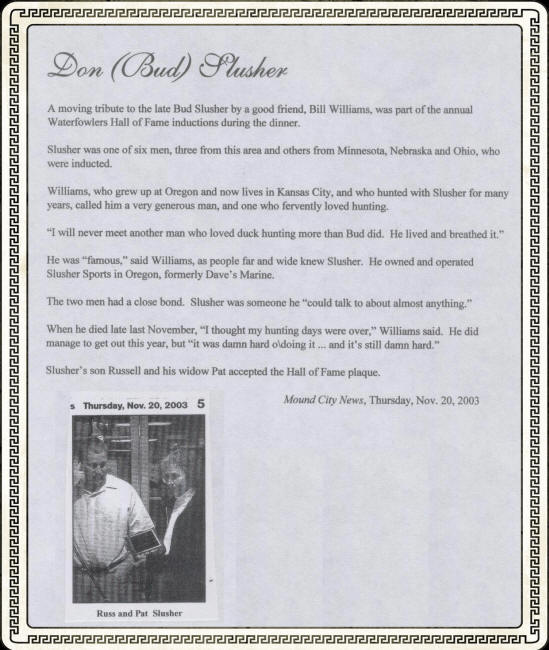 Don (Bud) Slusher
A moving tribute to the late Bud Slusher by a good friend, Bill Williams, was part of the annual
Waterfowlers Hall of Fame inductions during the dinner.
Slusher was one of six men, three from this area and others from Minnesota, Nebraska and Ohio, who
were inducted.
Williams, who grew up at Oregon and now lives in Kansas City, and who hunted with Slusher for many
years, called him a very generous man, and one who fervently loved hunting.
“I will never meet another man who loved duck hunting more than Bud did.  He lived and breathed it.”
He was “famous,” said Williams, as people far and wide knew Slusher.  He owned and operated
Slusher Sports in Oregon, formerly Dave’s Marine.
The two men had a close bond.  Slusher was someone he “could talk to about almost anything.”
When he died late last November, “I thought my hunting days were over,” Williams said.  He did
manage to get out this year, but “it was damn hard o\doing it ... and it’s still damn hard.”
Slusher’s son Russell and his widow Pat accepted the Hall of Fame plaque.
Mound City News, Thursday, Nov. 20, 2003
s Thursday, Nov. 20, 2003 5
Russ and Pat Slusher